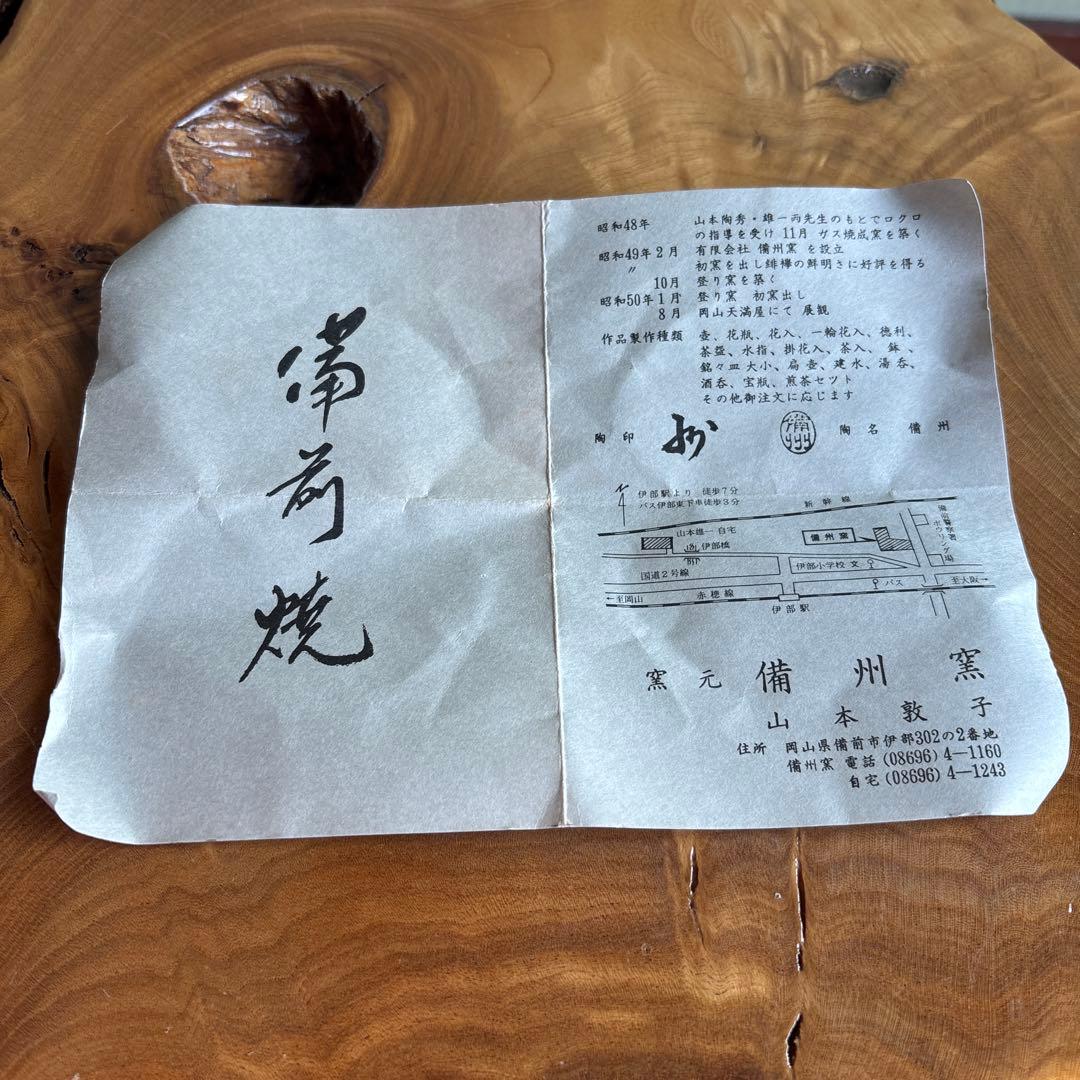 備前焼
昭和48年 山本陶秀・雄一両先生のもとでロクロ
の指導を受け 11月 ガス焼成窯を築く
昭和49年2月 有限会社 備州窯 を設立
〃 初窯を出し緋襷の鮮明さに好評を得る
10月 登り窯を築く
昭和50年1月 登り窯 初窯出し
8月 岡山天満屋にて 展観
作品製作種類 壺、花瓶、花入、一輪花入、徳利、
茶盌、水指、掛花入、茶入、鉢、
銘々皿大小、扁壺、建水、湯呑、
酒呑、宝瓶、煎茶セツト
その他御注文に応じます
陶印 州 備州 陶名 備州
伊部駅より 徒歩7分
バス伊部東下車徒歩3分
新幹線
備前警察署
ボウリング場
山本雄一自宅
備州窯
伊部橋
伊部小学校 文
国道2号線
バス
至大阪→
←至岡山
赤穂線
伊部駅
窯元 備州窯
山本敦子
住所 岡山県備前市伊部302の2番地
備州窯 電話(08696)4—1160
自宅(08696)4—1243